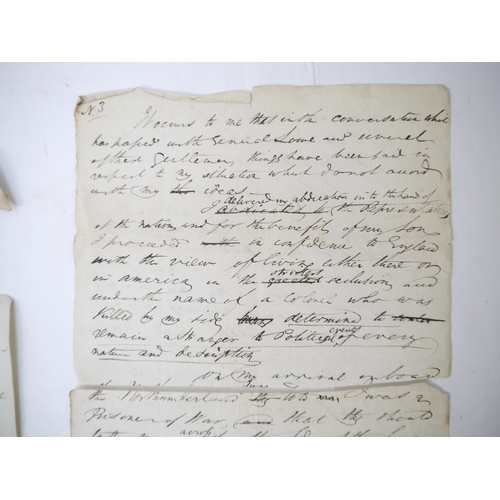 N 3
It occurs to me that in the conversation which
has passed with General Lowe and several
other Gentlemen things have been said in
respect to my situation which do not accord
with my the ideas
delivered my abdication into the hands of
I abdicated to the Representatives
of the nation, and for the benefit of my son
I proceeded with in confidence to England
with the view of living either there or
in america in the strictest greatest seclusion and
under the name of a Colonel who was
killed by my side determined to
remain a stranger to Political events of every
nature and description
On my arrival on board
the Northumberland they told I was a
Prisoner of War and that they should